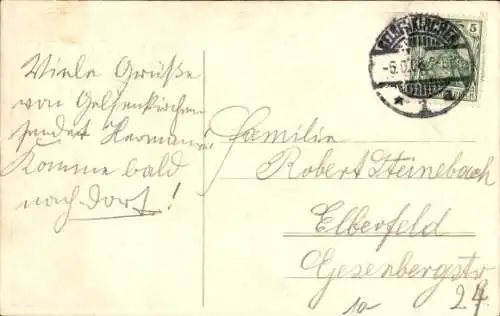 Viele Grüße
von Gelsenkirchen
sendet Hermann.
Komme bald
nach dort!
Familie
Robert Steinebach
Elberfeld
Gesenbergstr
24
10
5